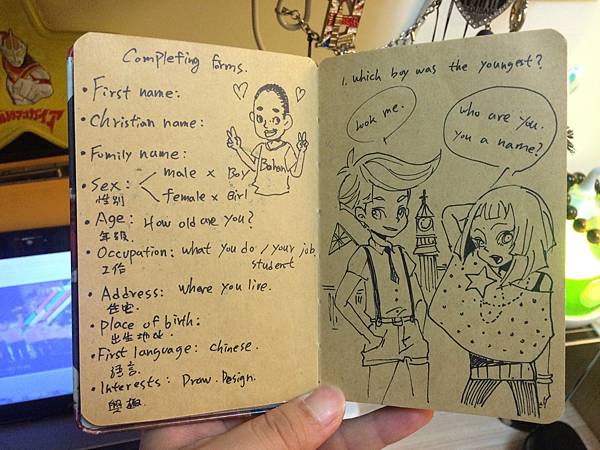 Completing forms.
• First name:
• Christian name:
• Family name:
• Sex: < male × Boy
female × Girl
性別
• Age: How old are you?
年級
• Occupation: what you do / your job.
student
工作
• Address: where you live.
住宅
• Place of birth:
出生地址
• First language: chinese.
語言
• Interests: Draw. Design.
興趣
1. which boy was the youngest?
look me.
who are you.
you a name?